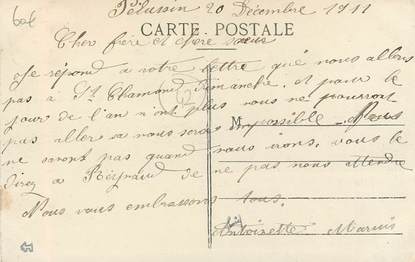 60€
Pélussin 20 Décembre 1911
CARTE POSTALE
Cher frère et chère sœur
Je répond à votre lettre que nous allons
pas à St Chamond Dimanche et pour le
jour de l'an n ont plus nous ne pourront
pas aller sa nous serai impossible Nous
M
ne seront pas quand nous irons vous le
direz à Reynaud de ne pas nous attendre
Nous vous embrassons tous.
Antoinette Marius